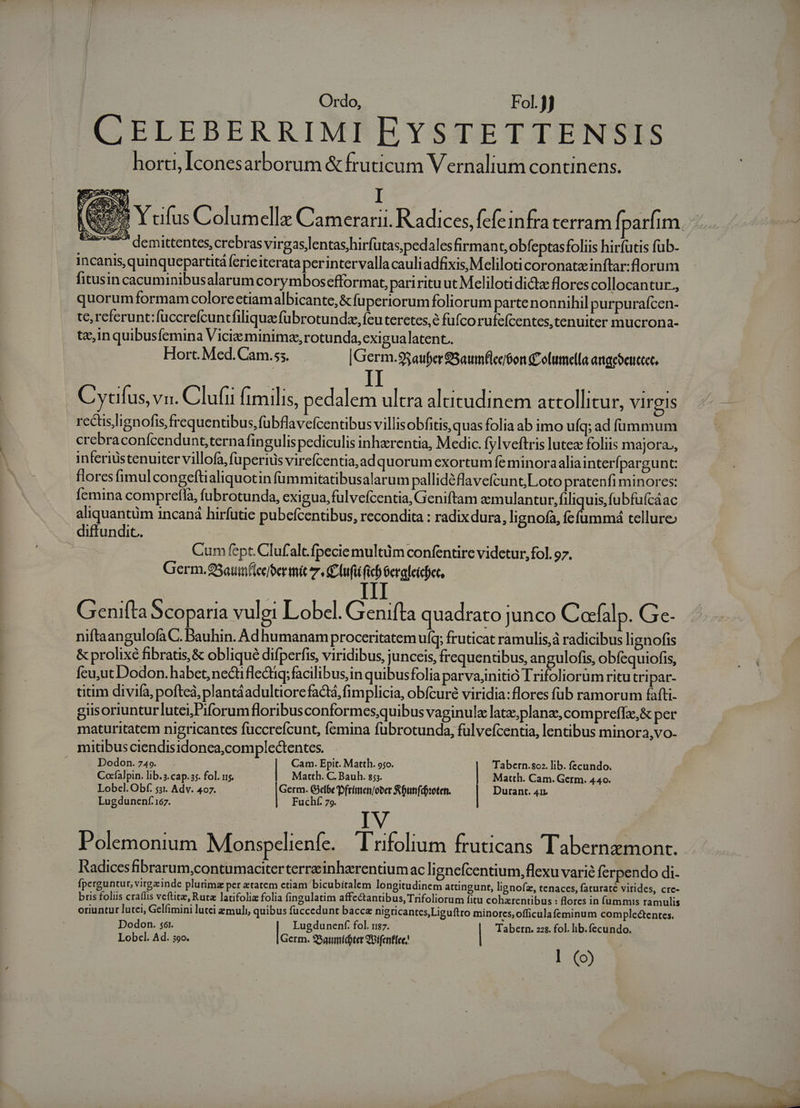 Ordo, Fol. JJ
CELEBERRIMI EYSTETTENSIS
horti, Icones arborum & fruticum Vernalium continens.
I
CYtifus Columellæ Camerarii. Radices, fefe infra terram fparfim
demittentes, crebras virgas, lentas, hirfutas, pedales firmant, obfeptas foliis hirfutis fub-
incanis, quinquepartitâ ferie iterata per intervalla cauli adfixis, Meliloti coronatæ inftar: florum
fitus in cacuminibus alarum corymbos efformat, pari ritu ut Meliloti dictæ flores collocantur.,
quorum formam colore etiam albicante, & fuperiorum foliorum parte nonnihil purpurafcen-
te, referunt: fuccrefcunt filiquæ fubrotundæ, feu teretes, é fufco rufefcentes, tenuiter mucrona-
tæ, in quibus femina Viciæ minimæ, rotunda, exigua latent.
Hort. Med. Cam. 55. Germ. Rauher Baumklee/von Columella angedeuttet.
II
Cytifus, vii. Clufii fimilis, pedalem ultra altitudinem attollitur, virgis
rectis, lignofis, frequentibus, fubflavefcentibus villis obfitis, quas folia ab imo ufq; ad fummum
crebra confcendunt, terna fingulis pediculis inhærentia, Medic. fylveftris luteæ foliis majora,
inferiùs tenuiter villofa, fuperiùs virefcentia, ad quorum exortum fe minora alia interfpargunt:
flores fimul congefti aliquot in fummitatibus alarum pallidè flavefcunt, Loto pratenfi minores:
femina compreffa, fubrotunda, exigua, fulvefcentia, Geniftam æmulantur, filiquis, fubfufcâ ac
aliquantùm incanâ hirfutie pubefcentibus, recondita: radix dura, lignofa, fefummâ tellure
diffundit.
Cum fept. Cluf. alt. fpecie multùm confentire videtur, fol. 97.
Germ. Baumklee/der mit 7. Clufii fich vergleichet.
III
Genifta Scoparia vulgi Lobel. Genifta quadrato junco Cæfalp. Ge-
nifta angulofa C. Bauhin. Ad humanam proceritatem ufq; fruticat ramulis, à radicibus lignofis
& prolixé fibratis, & obliqué difperfis, viridibus, junceis, frequentibus, angulofis, obfequiofis,
feu, ut Dodon. habet, necti flectiq; facilibus, in quibus folia parva, initiò Trifoliorùm ritu tripar-
titim divifa, pofteà, plantâ adultiore factâ, fimplicia, obfcuré viridia: flores fub ramorum fafti-
giis oriuntur lutei, Piforum floribus conformes, quibus vaginulæ latæ, planæ, compreffæ, & per
maturitatem nigricantes fuccrefcunt, femina fubrotunda, fulvefcentia, lentibus minora, vo-
mitibus ciendis idonea, complectentes.
Dodon. 749. Cam. Epit. Matth. 950. Tabern. 802. lib. fecundo.
Cæfalpin. lib. 3. cap. 35. fol. 115. Matth. C. Bauh. 853. Matth. Cam. Germ. 440.
Lobel. Obf. 531. Adv. 407. Germ. Gelbe Pfrimen/oder Kühnfchroten. Durant. 411.
Lugdunenf. 167. Fuchf. 79.
IV
Polemonium Monspelienfe. Trifolium fruticans Tabernæmont.
Radices fibrarum, contumaciter terræ inhærentium ac lignefcentium, flexu varié ferpendo di-
fperguntur, virgæ inde plurimæ per ætatem etiam bicubitalem longitudinem attingunt, lignofæ, tenaces, faturaté virides, cre-
bris foliis craffis veftitæ, Rutæ latifoliæ folia fingulatim affectantibus, Trifoliorum fitu cohærentibus: flores in fummis ramulis
oriuntur lutei, Gelfimini lutei æmuli, quibus fuccedunt baccæ nigricantes, Liguftro minores, officula feminum complectentes.
Dodon. 561. Lugdunenf. fol. 1187. Tabern. 228. fol. lib. fecundo.
Lobel. Ad. 390. Germ. Baumichter Wifenklee.
l (o)